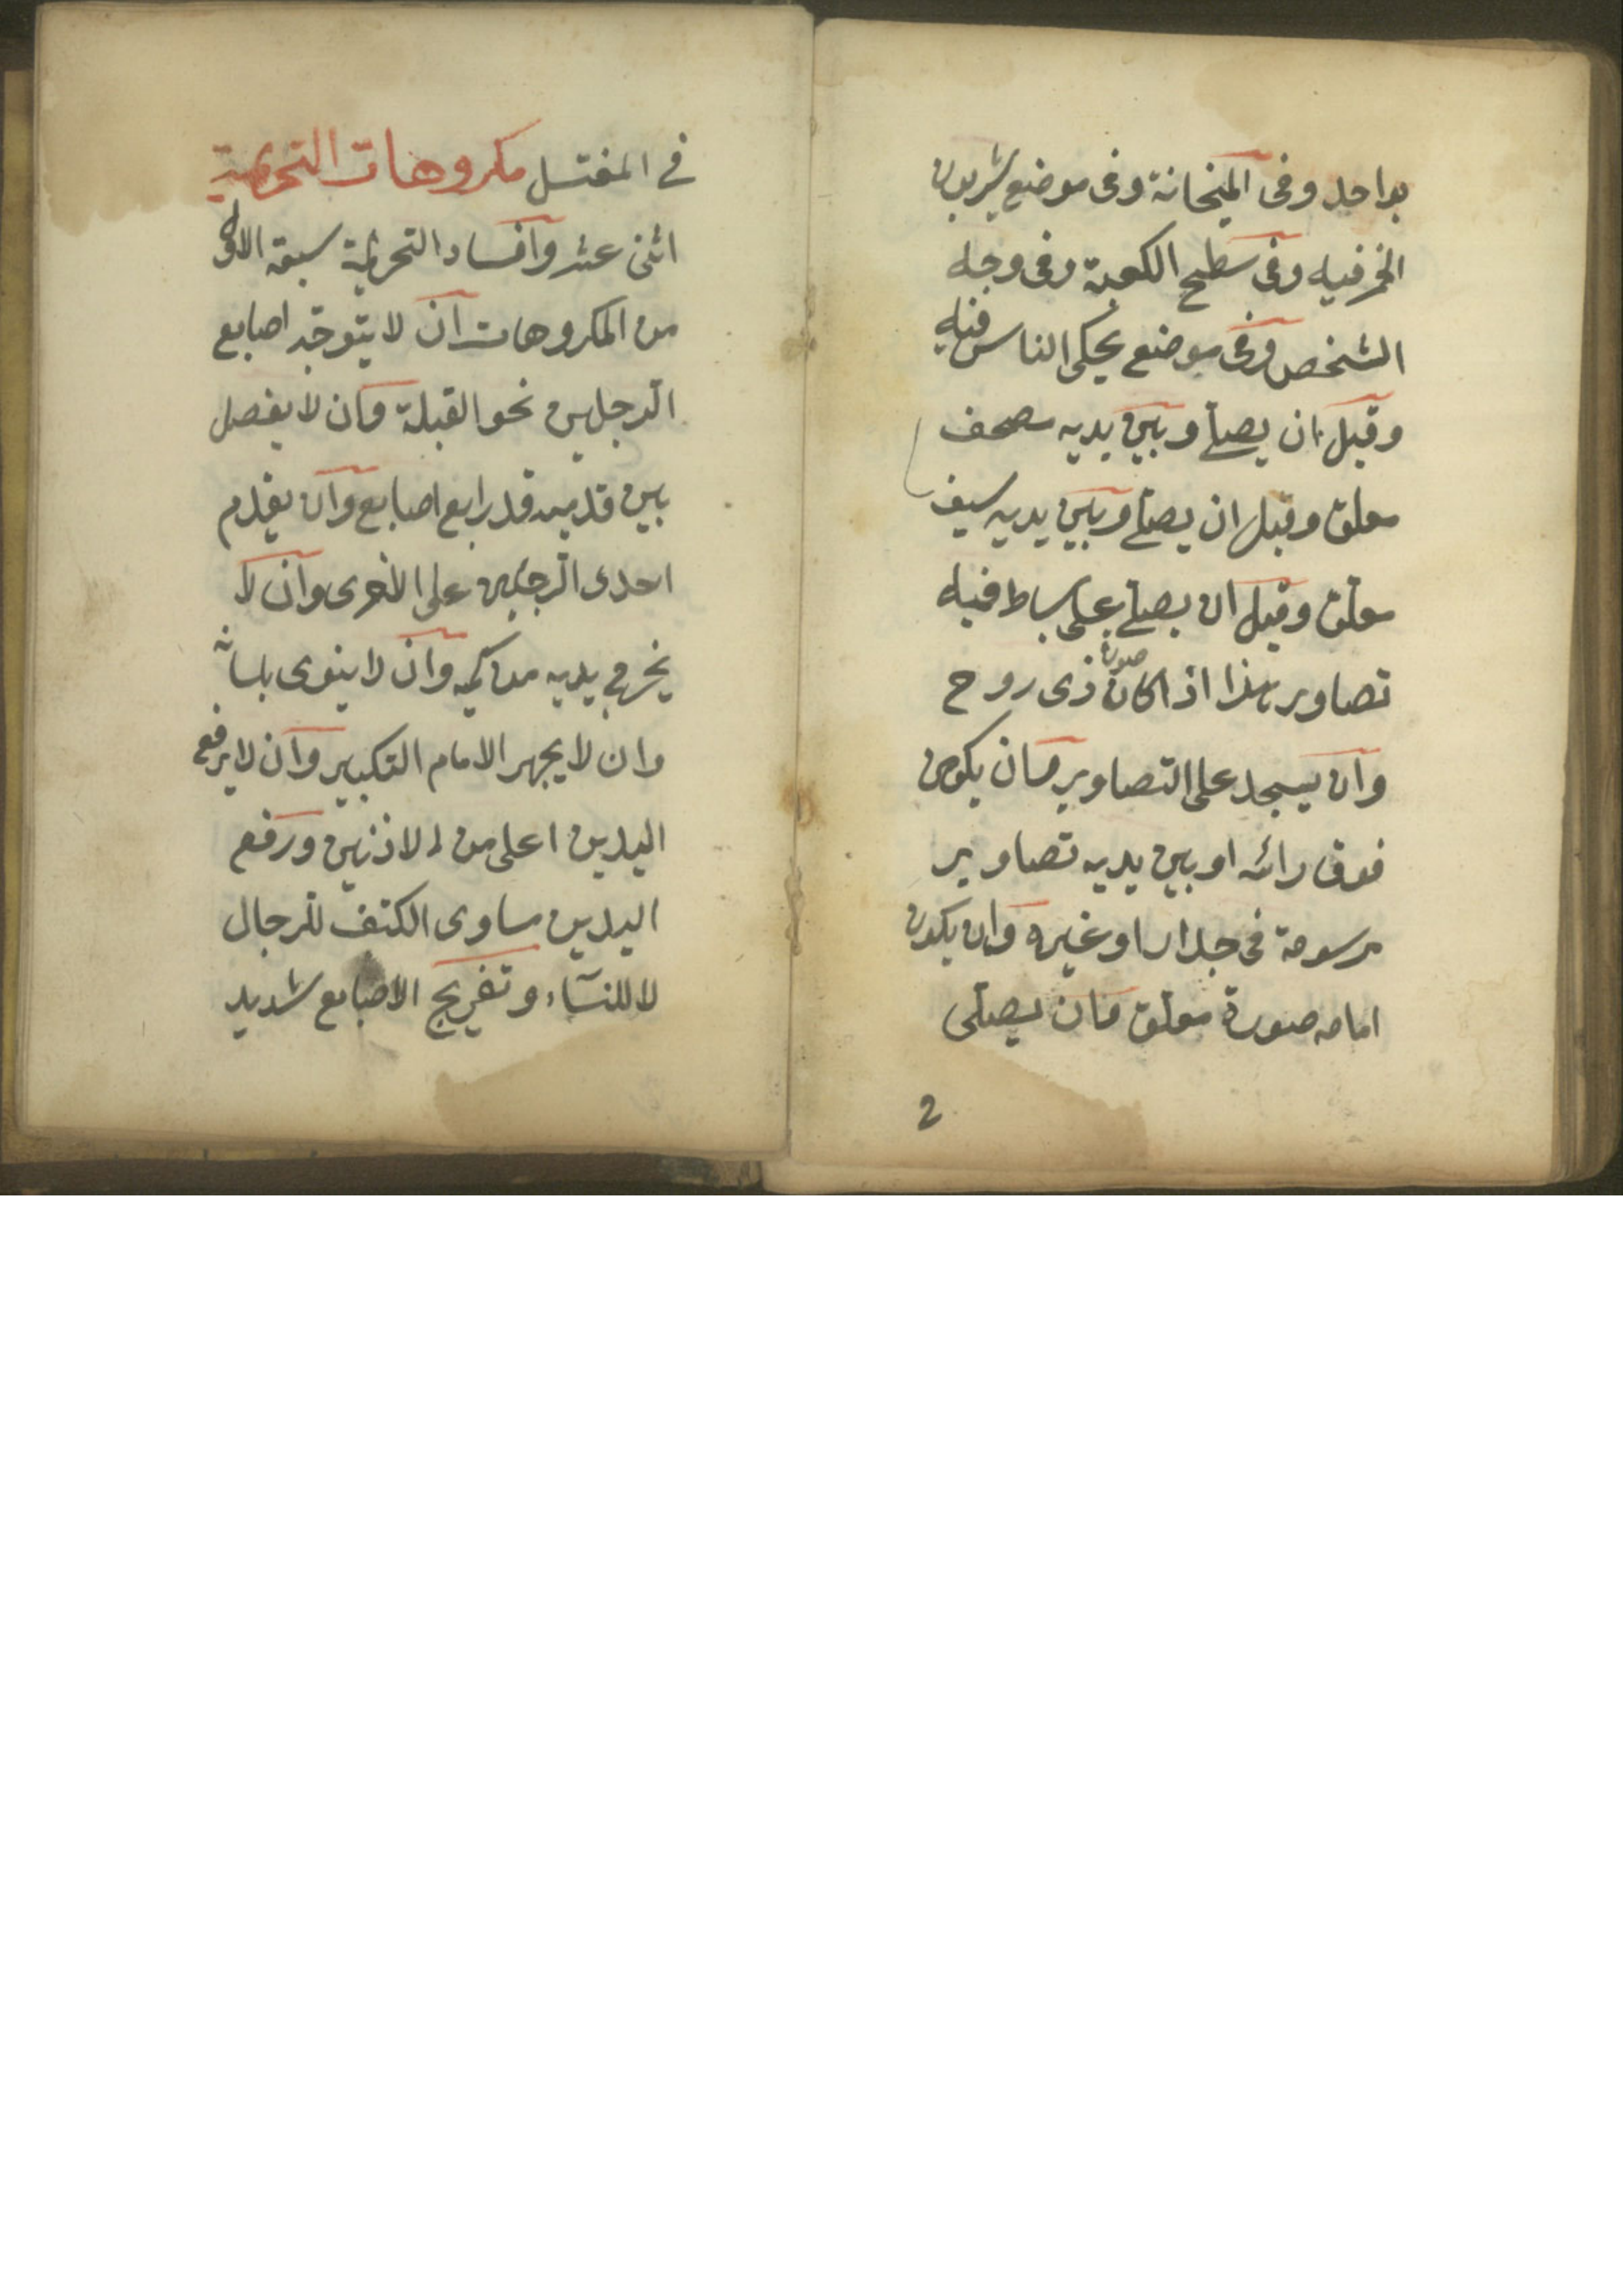 بواحد وفى الميخانة وفى موضع يشربون
الخمر فيه وفى سطح الكعبة وفى وجه
الشخص وفى موضع يحكى الناس فيه
وقيل ان يصلى وبين يديه مصحف
معلق وقيل ان يصلى وبين يديه سيف
معلق وقيل ان يصلى على بساط فيه
تصاوير هذا اذا كان صورة ذى روح
وان يسجد على التصاوير وان يكون
فوق رائسه او بين يديه تصاوير
مرسومة فى جدار او غيره وان يكون
امامه صورة معلق وان يصلى
2
فى المغتسل مكروهات التحريمة
اثنى عشر وافساد التحريمة سبعة الاول
من المكروهات ان لا يتوجّه اصابع
الرجلين نحو القبلة وان لا يفصل
بين قدميه قدر اربع اصابع وان يقدم
احدى الرجلين على الاخرى وان لا
يخرج يديه من كميه وان لا ينوى بلسانه
وان لا يجهر الامام التكبير وان لا يرفع
اليدين اعلى من الاذنين ورفع
اليدين مساوى الكتف للرجال
لا للنسآء وتفريج الاصابع شديد